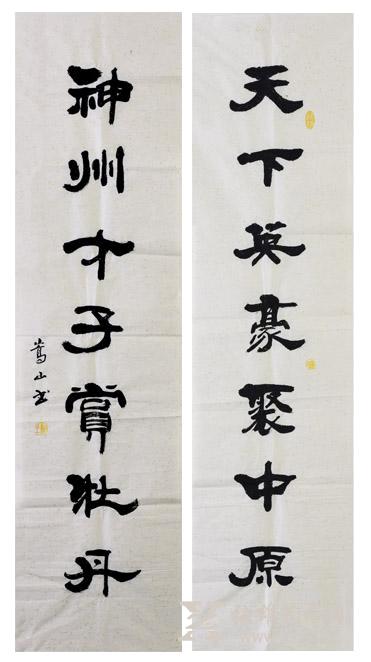 天下英豪聚中原
神州才子赏牡丹
嵩山书